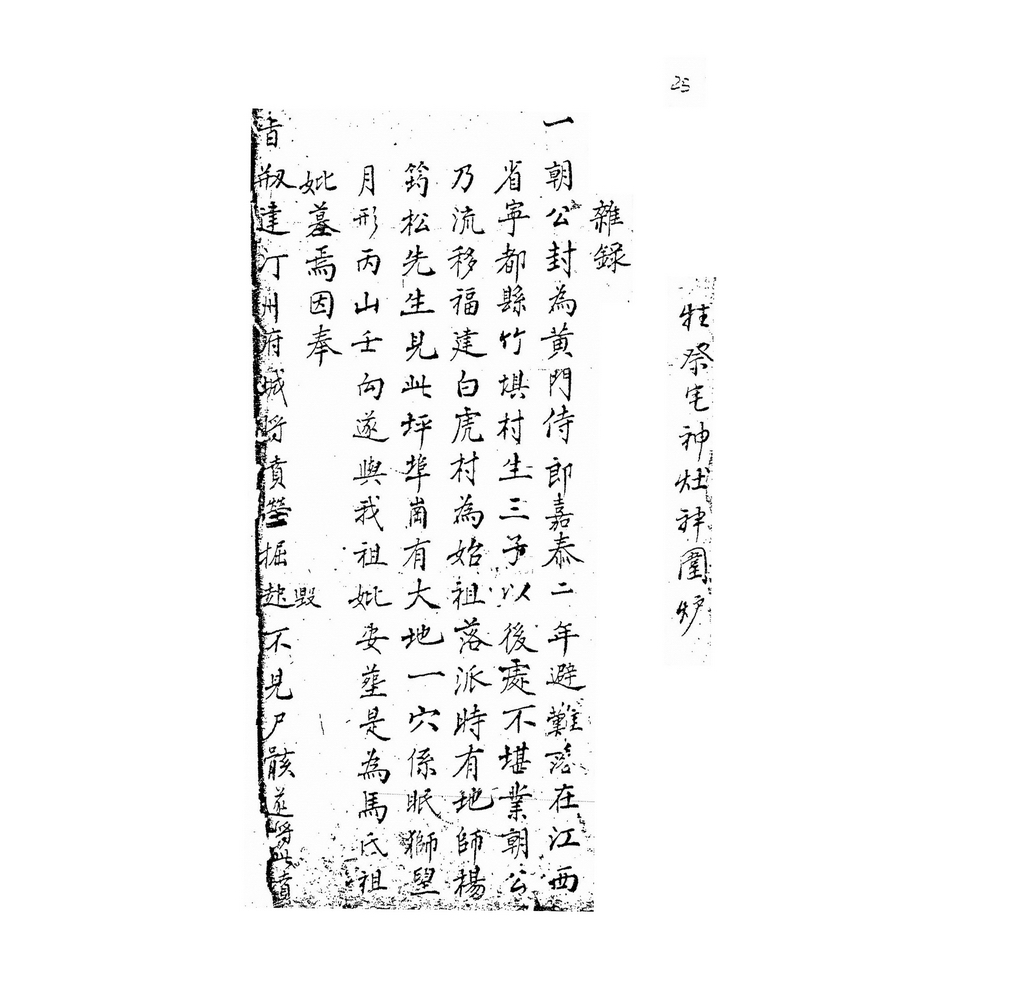 25
牲祭宅神灶神圍炉
雜録
一朝公封為黄門侍郎嘉泰二年避難落在江西
省寧都縣竹垻村生三子以後處不堪業朝公
乃流移福建白虎村為始祖落派時有地師楊
筠松先生見此坪埠崗有大地一穴係眠獅望
月形丙山壬向遂與我祖妣安塟是為馬氏祖
妣墓焉因奉
旨叛逹汀州府城將墳塋掘起毀不見尸骸遂將此墳